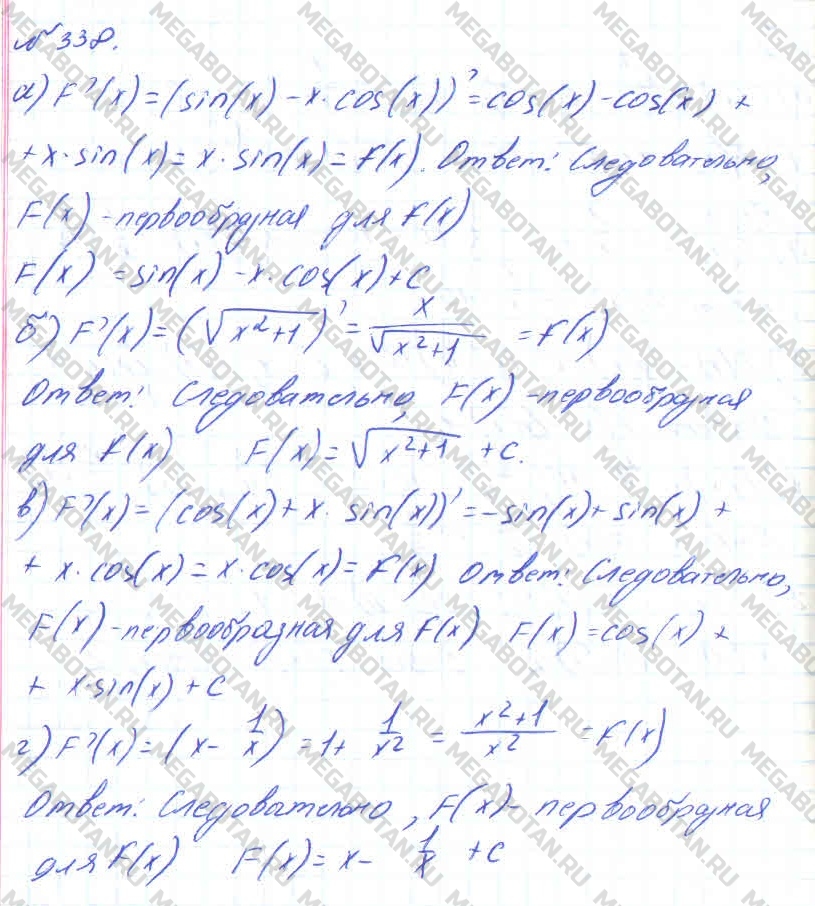 №338.
а) F'(x)=(sin(x) - x·cos(x))'=cos(x)-cos(x) +
+ x·sin(x)= x·sin(x)=f(x). Ответ: Следовательно,
F(x)-первообразная для f(x)
F(x) =sin(x)-x·cos(x)+C
б) F'(x)=(√(x²+1))'= x/√(x²+1) =f(x)
Ответ: Следовательно, F(x)-первообразная
для f(x) F(x)=√(x²+1) +C.
в) F'(x)=(cos(x)+x·sin(x))'=-sin(x)+sin(x) +
+ x·cos(x)=x·cos(x)=f(x) Ответ: Следовательно,
F(x)-первообразная для f(x) F(x)=cos(x) +
+ x·sin(x)+C
г) F'(x)=(x- 1/x) =1+ 1/x² = (x²+1)/x² =f(x)
Ответ: Следовательно, F(x)- первообразная
для f(x) F(x)=x- 1/x +C
MEGABOTAN.RU